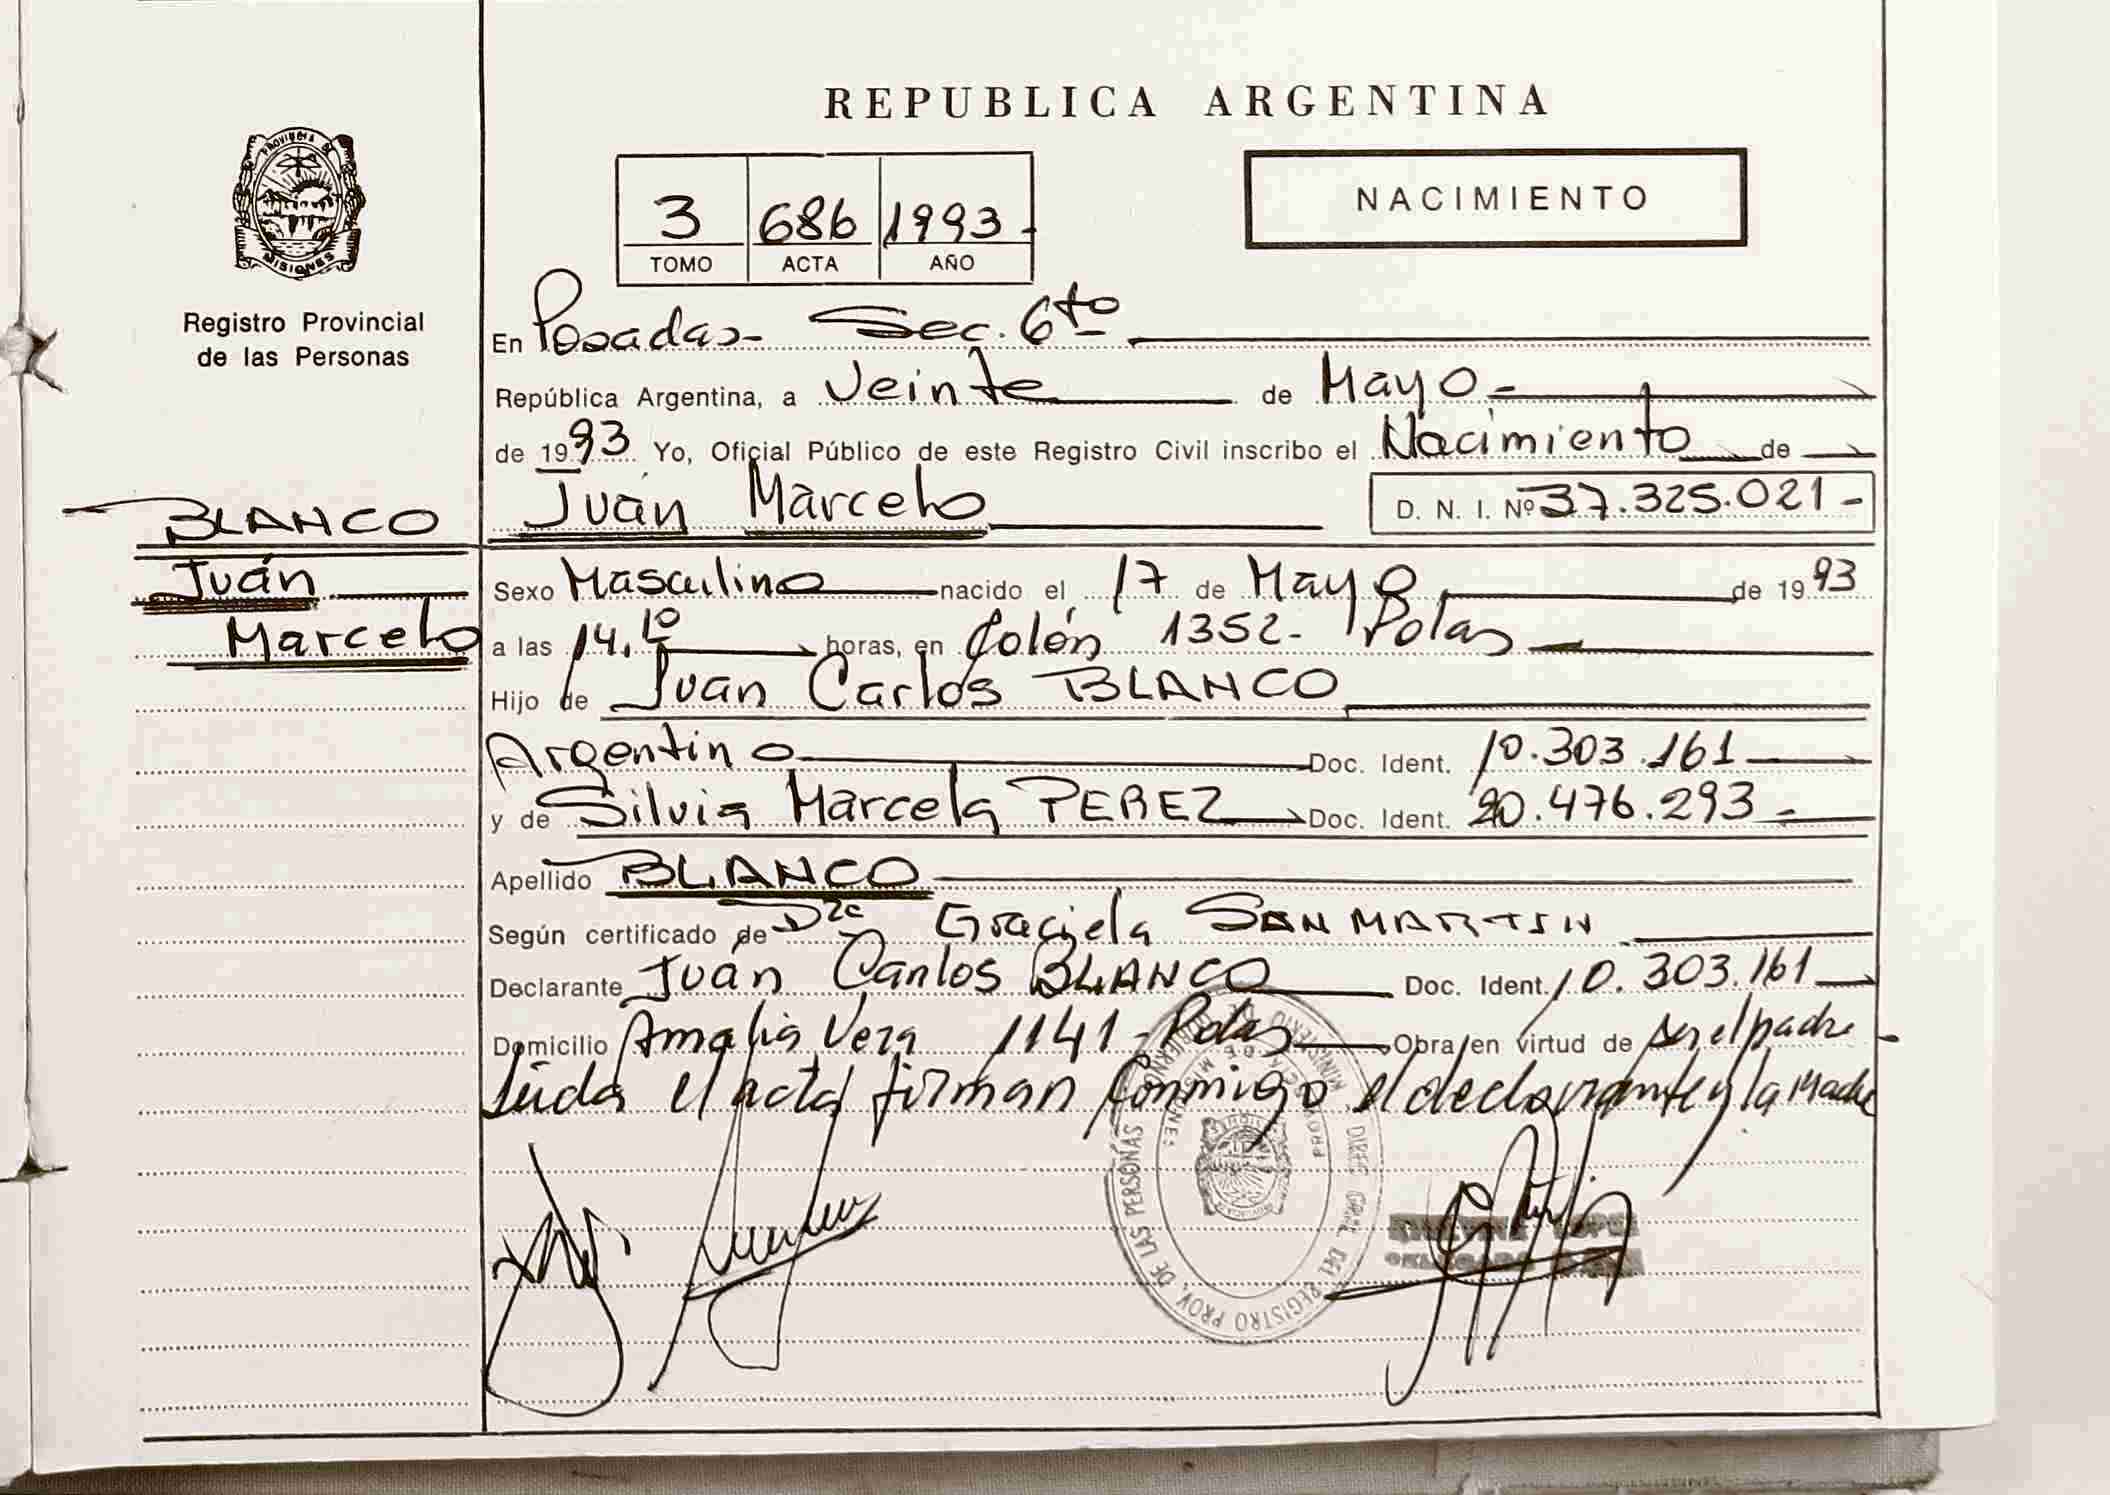 REPUBLICA ARGENTINA
PROVINCIA DE
MISIONES
Registro Provincial
de las Personas
NACIMIENTO
3 686 1993-
TOMO ACTA AÑO
En Posadas- Sec. 6to
República Argentina, a Veinte de Mayo-
de 1993 Yo, Oficial Público de este Registro Civil inscribo el Nacimiento de
Juán Marcelo D. N. I. Nº 37.325.021-
BLANCO
Juán
Marcelo
Sexo Masculino nacido el 17 de Mayo de 1993
a las 14.10 horas, en Colón 1352- Pdas
Hijo de Juan Carlos BLANCO
Argentino Doc. Ident. 10.303.161
y de Silvia Marcela PEREZ Doc. Ident. 20.476.293-
Apellido BLANCO
Según certificado de Dra Graciela SAN MARTIN
Declarante Juán Carlos BLANCO Doc. Ident. 10.303.161
Domicilio Amalia Vera 1141- Pdas Obra en virtud de ser el padre-
Leída el acta firman conmigo el declarante y la Madre
DIREC. GRAL. DEL REGISTRO PROV. DE LAS PERSONAS